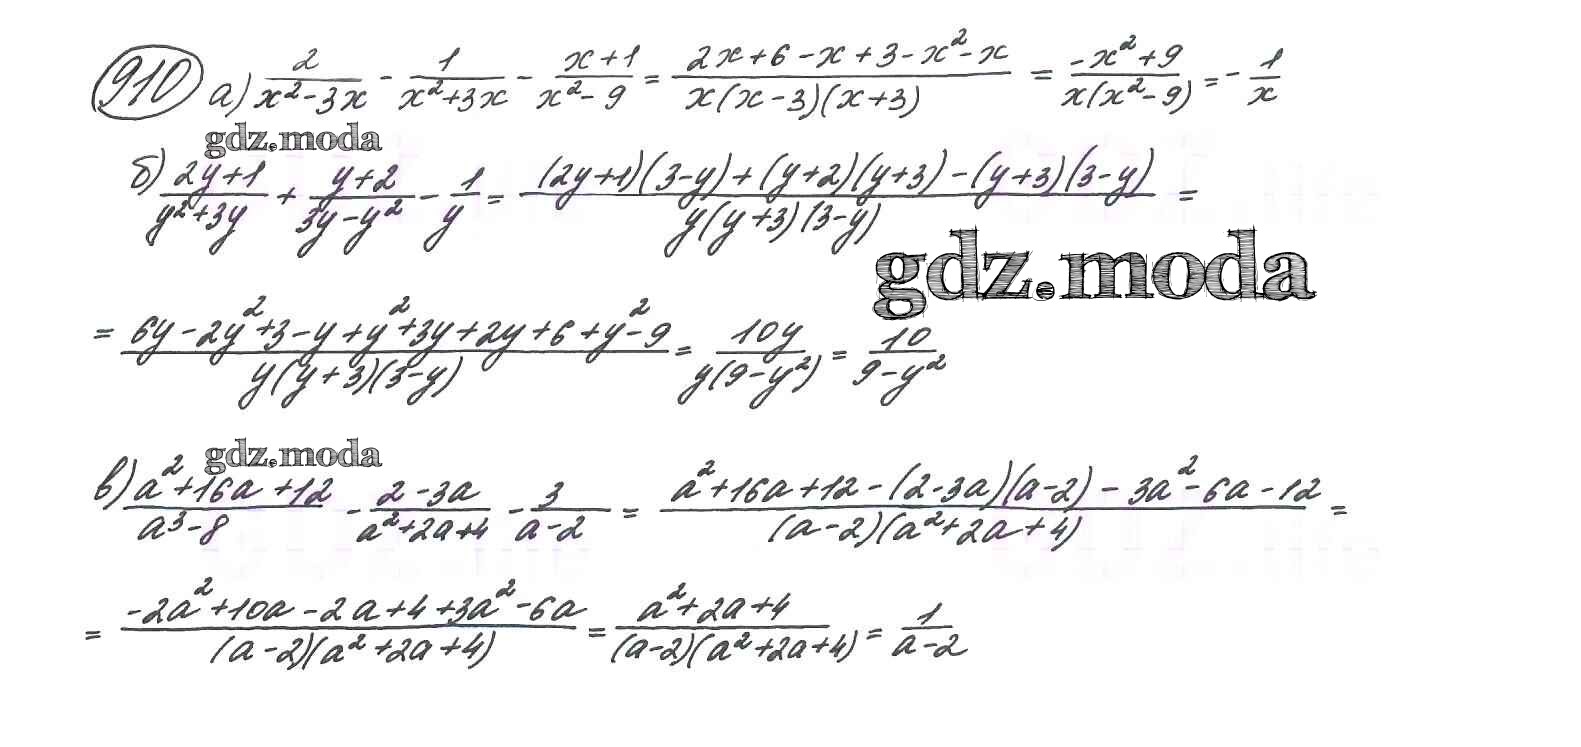 910 а) 2/(x²-3x) - 1/(x²+3x) - (x+1)/(x²-9) = (2x+6-x+3-x²-x)/(x(x-3)(x+3)) = (-x²+9)/(x(x²-9)) = -1/x
gdz.moda
б) (2y+1)/(y²+3y) + (y+2)/(3y-y²) - 1/y = ((2y+1)(3-y)+(y+2)(y+3)-(y+3)(3-y))/(y(y+3)(3-y)) =
gdz.moda
= (6y-2y²+3-y+y²+3y+2y+6+y²-9)/(y(y+3)(3-y)) = 10y/(y(9-y²)) = 10/(9-y²)
gdz.moda
в) (a²+16a+12)/(a³-8) - (2-3a)/(a²+2a+4) - 3/(a-2) = (a²+16a+12-(2-3a)(a-2)-3a²-6a-12)/((a-2)(a²+2a+4)) =
= (-2a²+10a-2a+4+3a²-6a)/((a-2)(a²+2a+4)) = (a²+2a+4)/((a-2)(a²+2a+4)) = 1/(a-2)